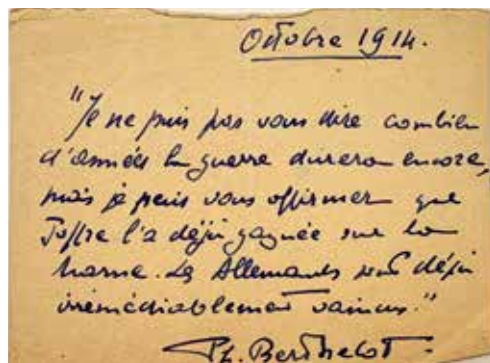 Octobre 1914.
"Je ne puis pas vous dire combien
d'années la guerre durera encore,
mais je peux vous affirmer que
Joffre l'a déjà gagnée sur la
Marne. Les Allemands sont déjà
irrémédiablement vaincus."
Ph. Berthelot